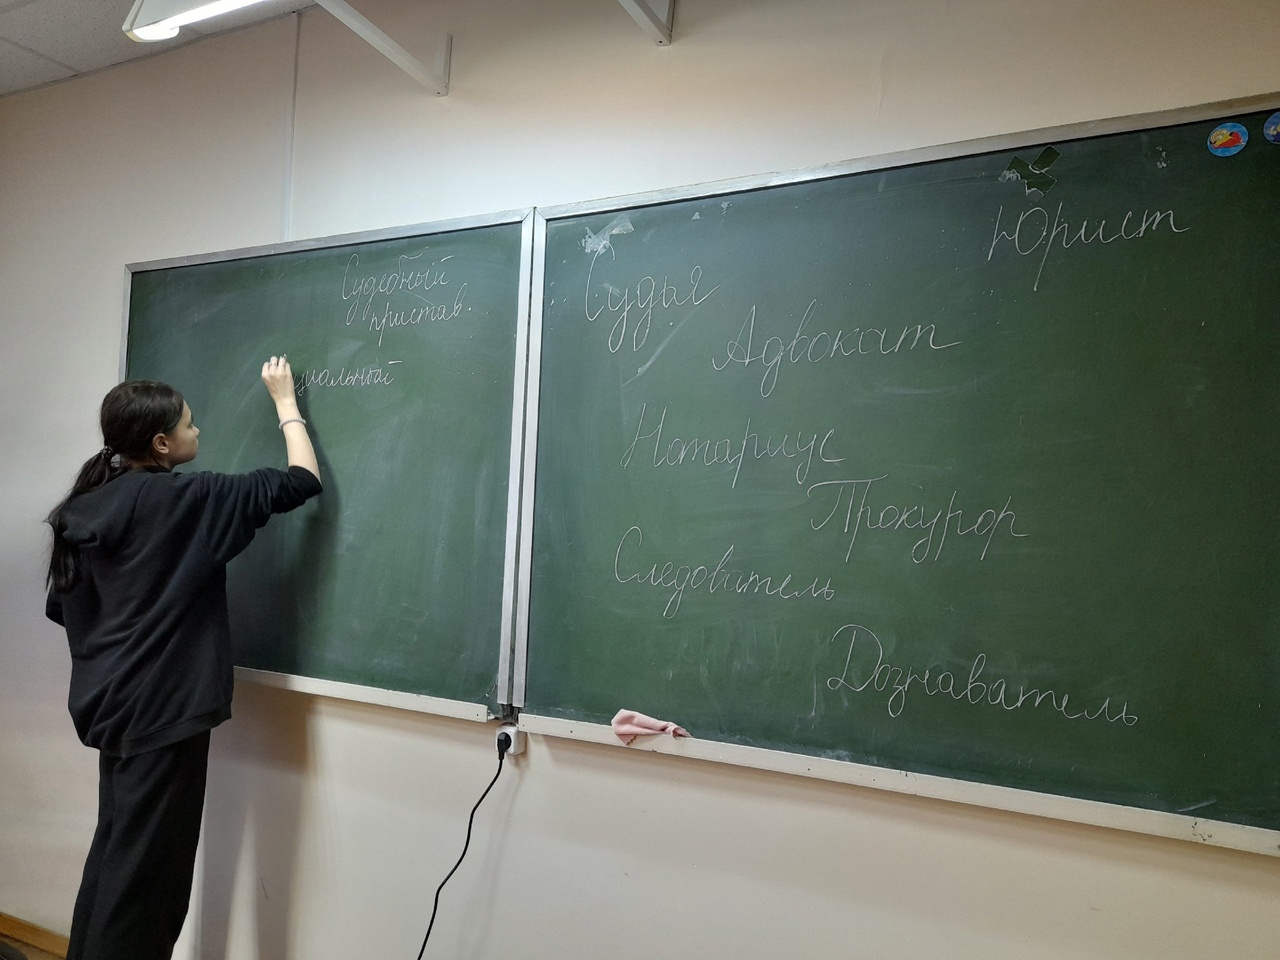 Судебный
пристав.
циальный
Юрист
Судья
Адвокат
Нотариус
Прокурор
Следователь
Дознаватель